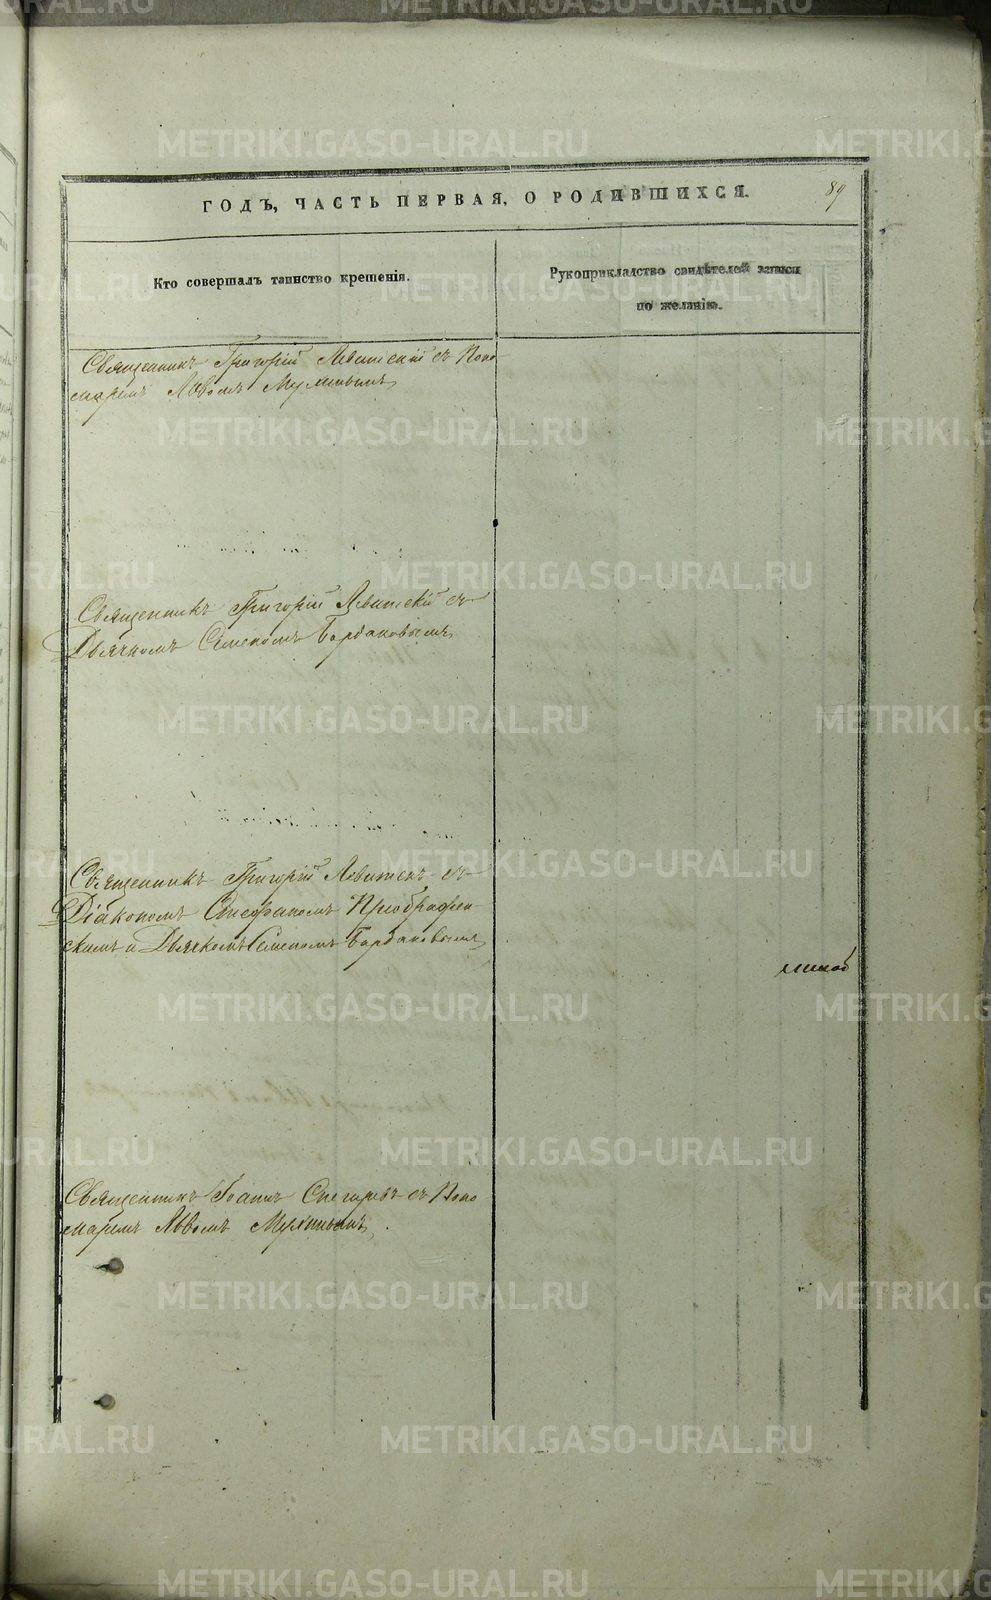 METRIKI.GASO-URAL.RU
ГОДЪ, ЧАСТЬ ПЕРВАЯ, О РОДИВШИХСЯ.
89
Кто совершалъ таинство крещенія.
Рукоприкладство свидѣтелей записи
по желанію.
Священникъ Григорій Левитскій съ Поно-
маремъ Львомъ
Священникъ Григорій Левитскій съ
Дьячкомъ Семеномъ Бардаковымъ
Священникъ Григорій Левитск съ
Діакономъ Стефаномъ Преображен-
скимъ и Дьячкомъ Семеномъ Бардаковымъ
Священникъ Іоаннъ съ Поно
маремъ Львомъ